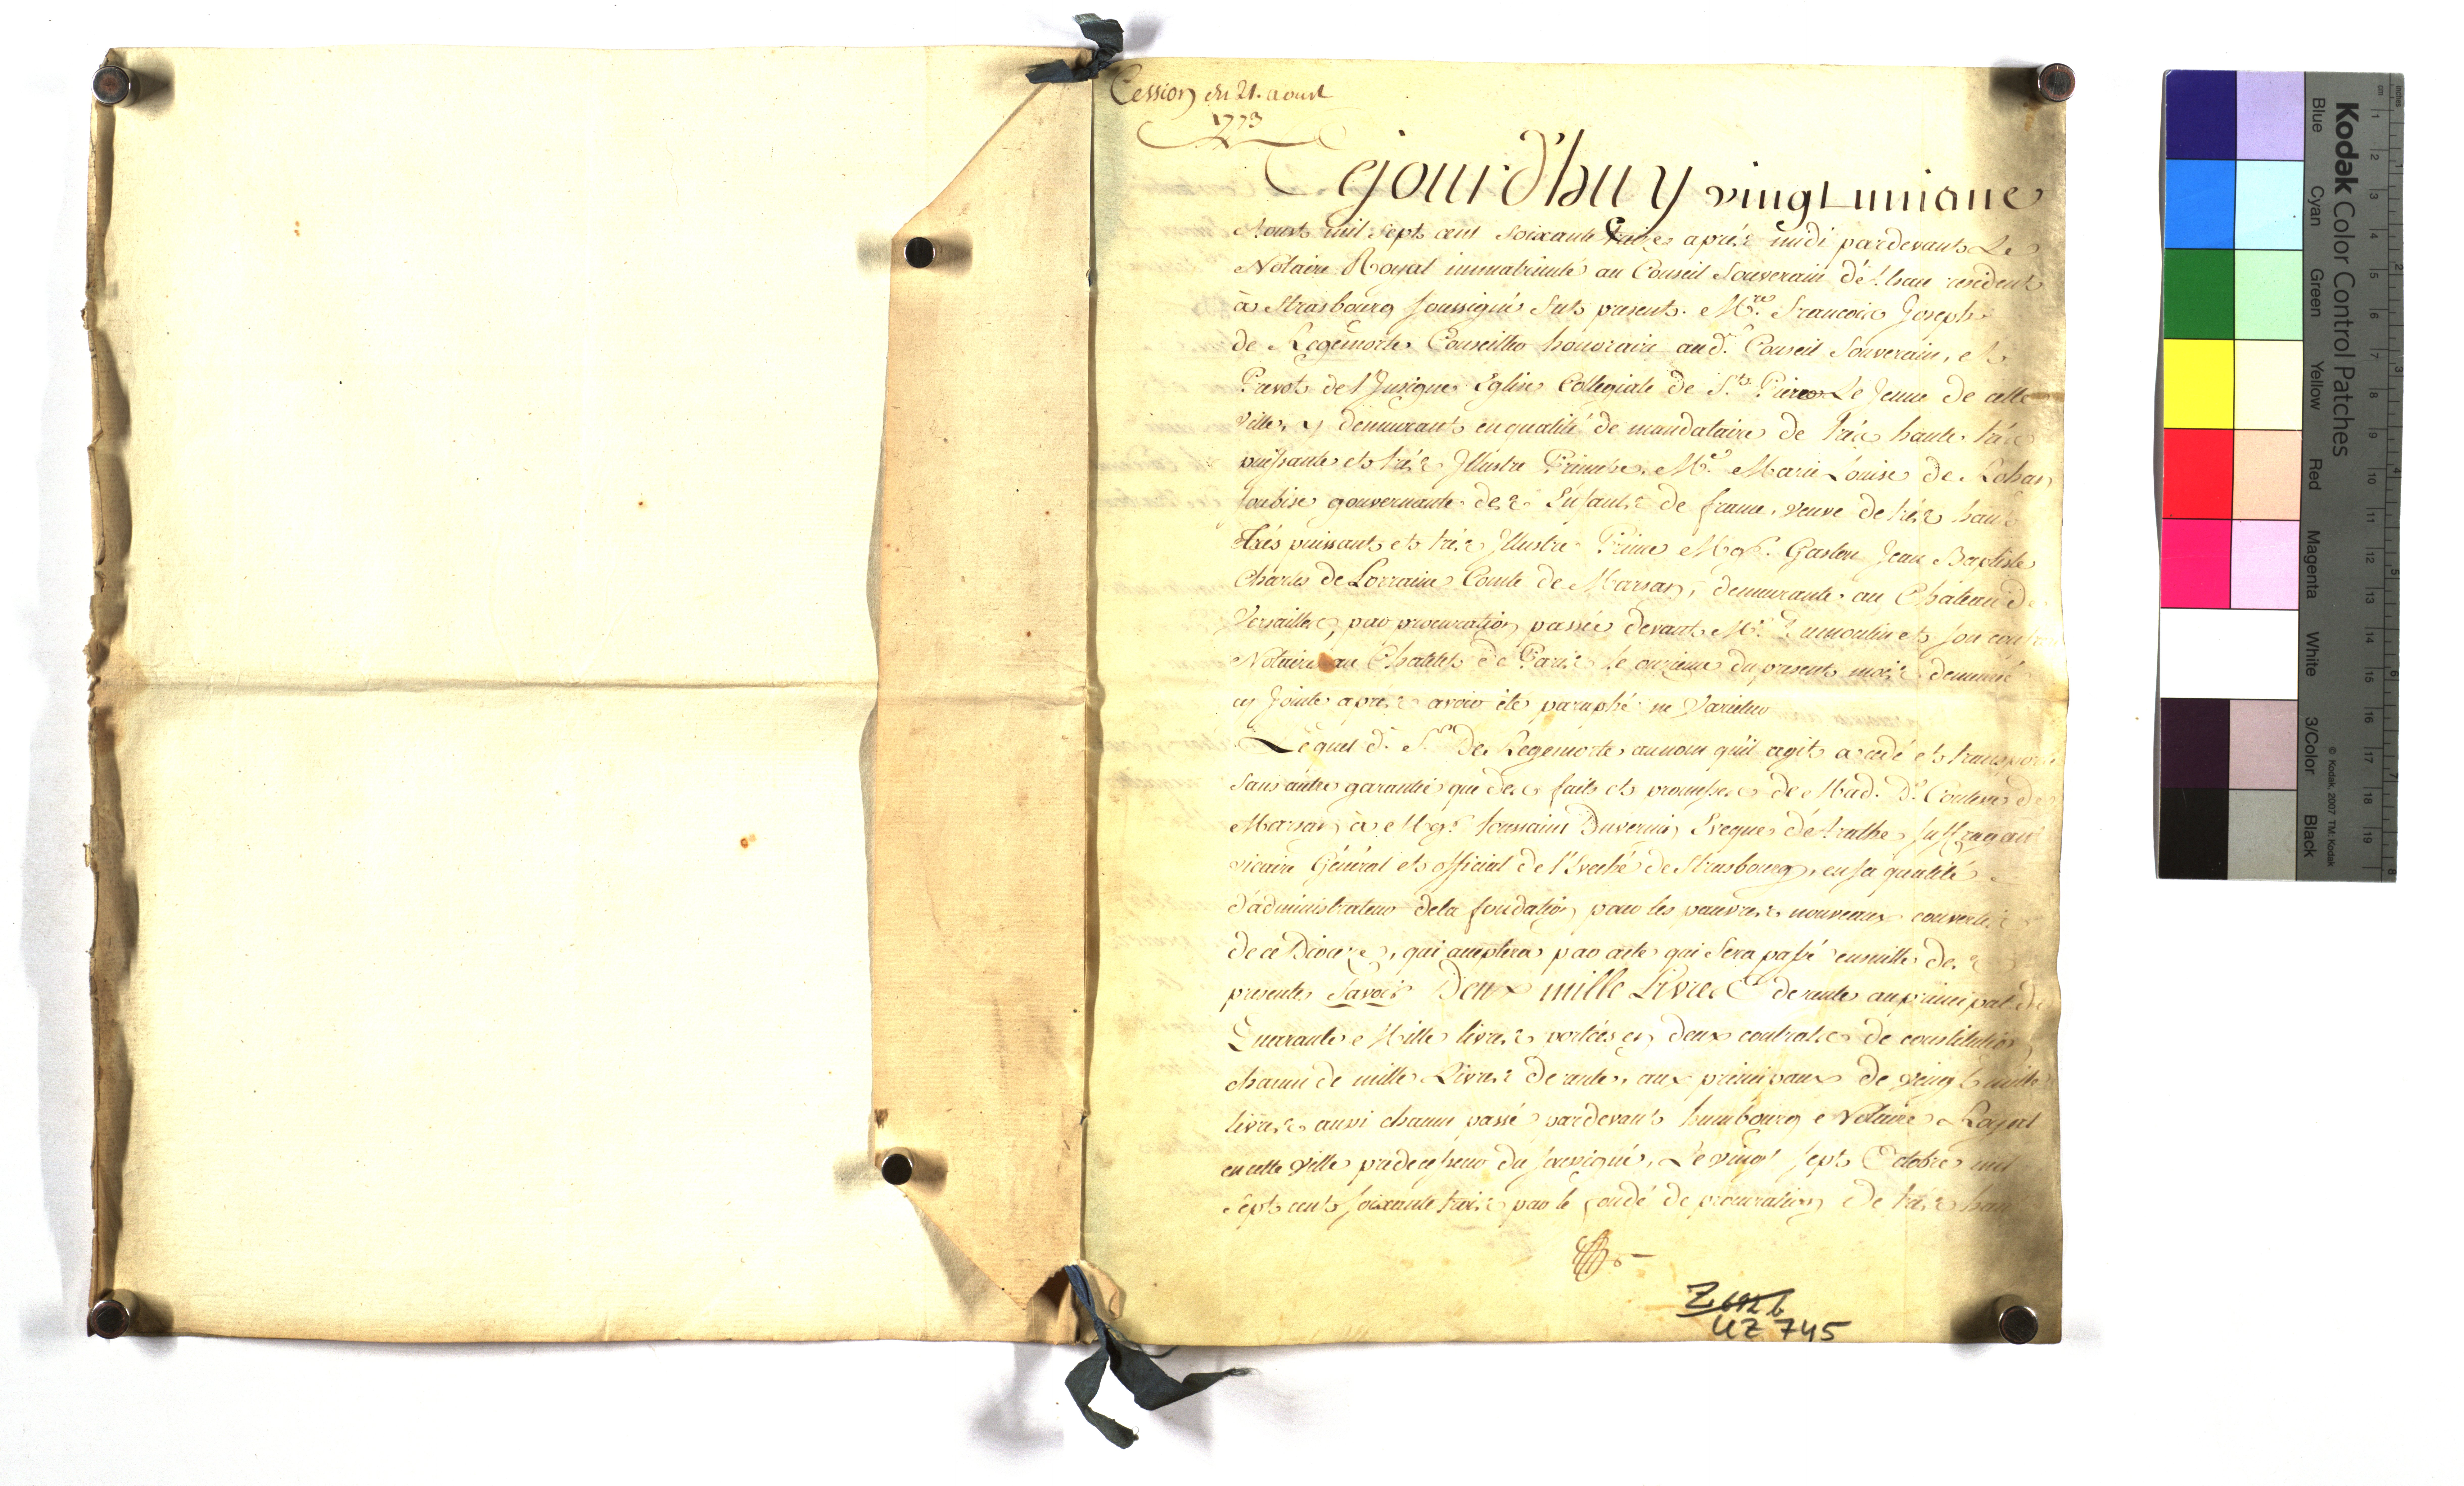 Cession du 21. aoust
1773
Cejourd'huy vingt unieme
Aoust mil sept cent soixante treize après midi pardevant Le
Notaire Royal immatriculé au Conseil Souverain d'Alsace resident
à Strasbourg soussigné fut present. M.re François Joseph
de Regemorte Conseiller honoraire aud. Conseil Souverain, et
Prevot de l'Insigne Eglise Collegiale de St. Pierre Le Jeune de cette
ville, y demeurant en qualité de mandataire de très haute très
puissante et très Illustre Princesse Me. Marie Louise de Rohan
Soubise gouvernante des Enfants de france, veuve de très haut
très puissant et très Illustre Prince Mgr. Gaston Jean Baptiste
Charles de Lorraine Comte de Marsan, demeurante au Château de
Versailles, par procuration passée devant Me. Dumoulin et son
Notaire au Chatelet de Paris le onzieme du present mois demeuré
cy Jointe après avoir été paraphé ne Varietur
Lequel d. S. De Regemorte, au nom qu'il agit a cedé et transporté
sans autre garantie que des faits et promesses de Mad. De. Comtesse de
Marsan à Mgr. Toussaint Duvernin Eveque d'Arathe Suffragant
vicaire Général et official de l'Eveché de Strasbourg, en sa qualité
d'administrateur de la fondation pour les pauvres nouveaux convertis
de ce Diocese, qui acceptera par acte qui sera passé ensuitte des
presentes Savoir Deux mille Livres de rente au principal de
Quarante Mille livres portées en deux contrats de constitution
chacun de mille Livres de rente, aux principaux de vingt mille
livres aussi chacun passé pardevant humbourg Notaire Royal
en cette ville predecesseur du soussigné, Le vingt sept Octobre mil
sept cent soixante trois par le fondé de procuration de très haut
Z 692 b
UZ 745
Kodak Color Control Patches
Blue Cyan Green Yellow Red Magenta White 3/Color Black
© Kodak, 2007 TM: Kodak
cm 1 2 3 4 5 6 7 8 9 10 11 12 13 14 15 16 17 18 19
inches 1 2 3 4 5 6 7 8